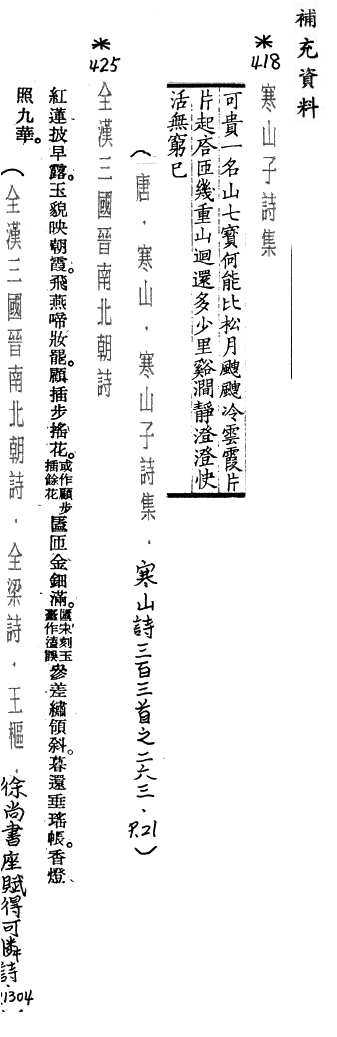 補充資料
*418
寒山子詩集
可貴一名山七寶何能比松月颼颼冷雲霞片
片起㕎匝幾重山迴還多少里谿澗靜澄澄快
活無窮已
(唐.寒山.寒山子詩集.寒山詩三百三首之二六三.P.21)
*425
全漢三國晉南北朝詩
紅蓮披早露。玉貌映朝霞。飛燕啼妝罷。顧插步搖花。或作顧步插餘花匼匝金鈿滿。匼宋刻玉臺作渣誤參差繡領斜。暮還垂瑤帳。香燈
照九華。
(全漢三國晉南北朝詩.全梁詩.王樞.徐尚書座賦得可憐詩.1304